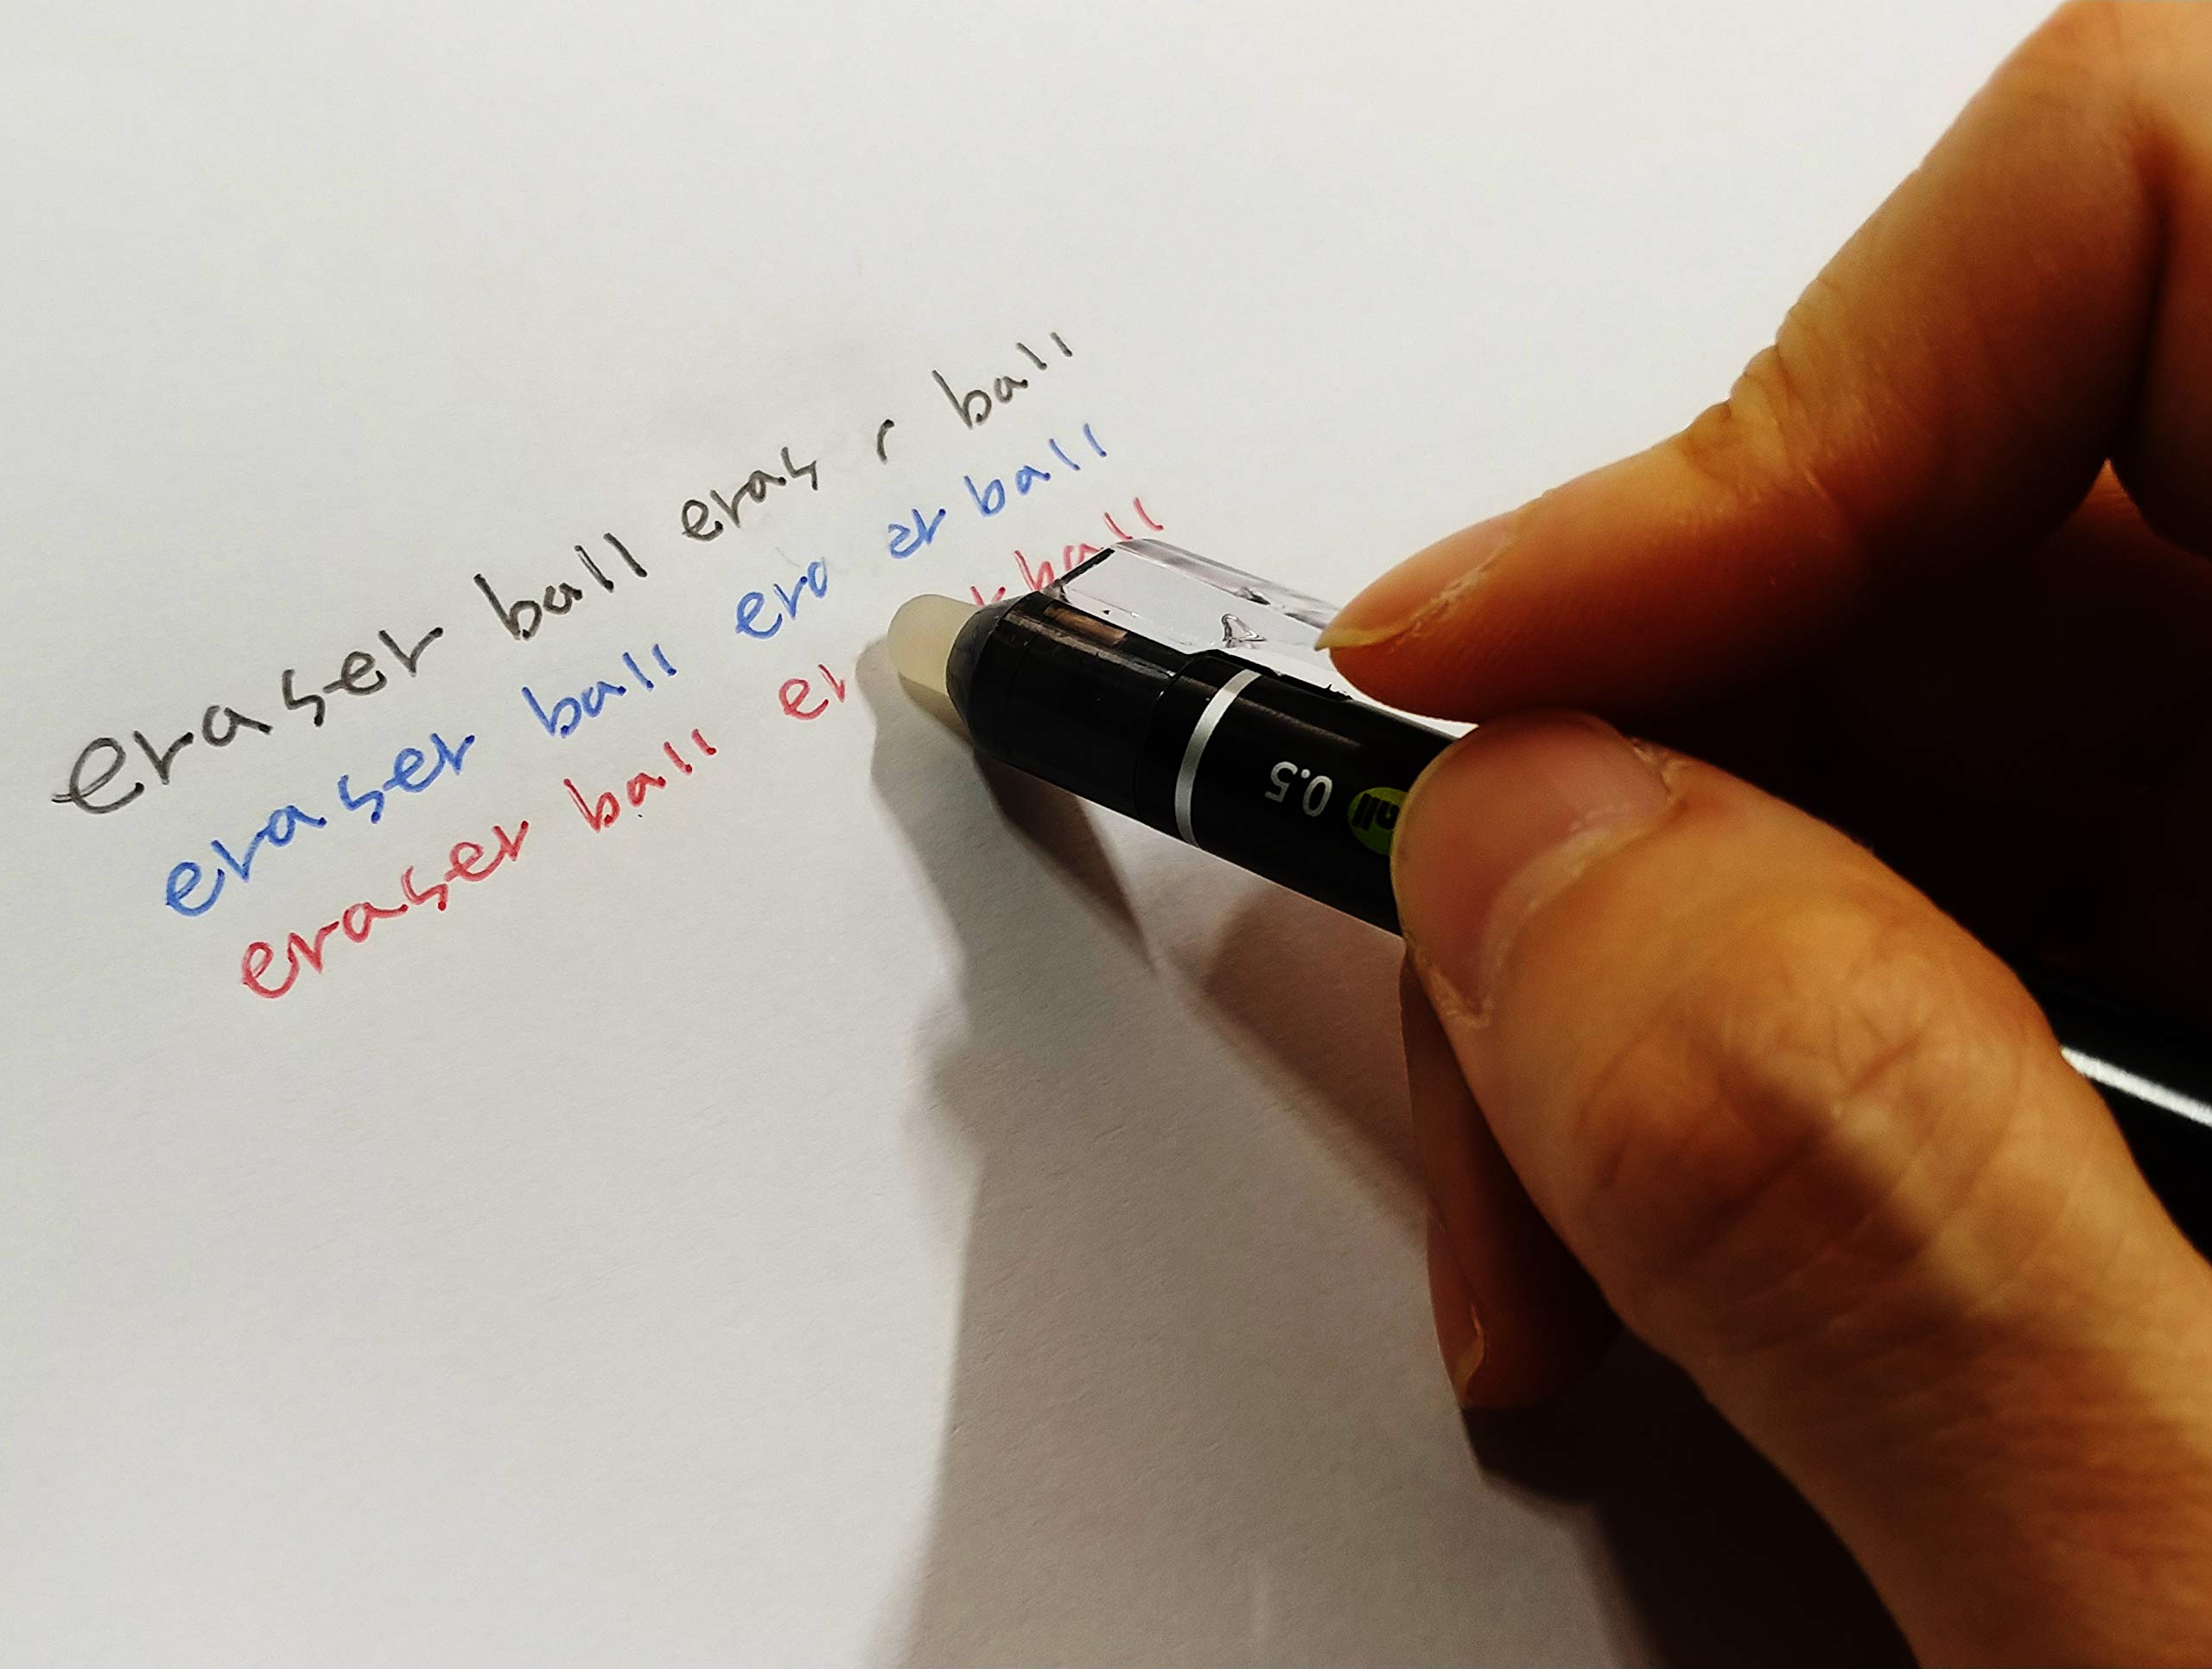 eraser ball eras r ball
eraser ball era er ball
eraser ball er r ball
0.5
all